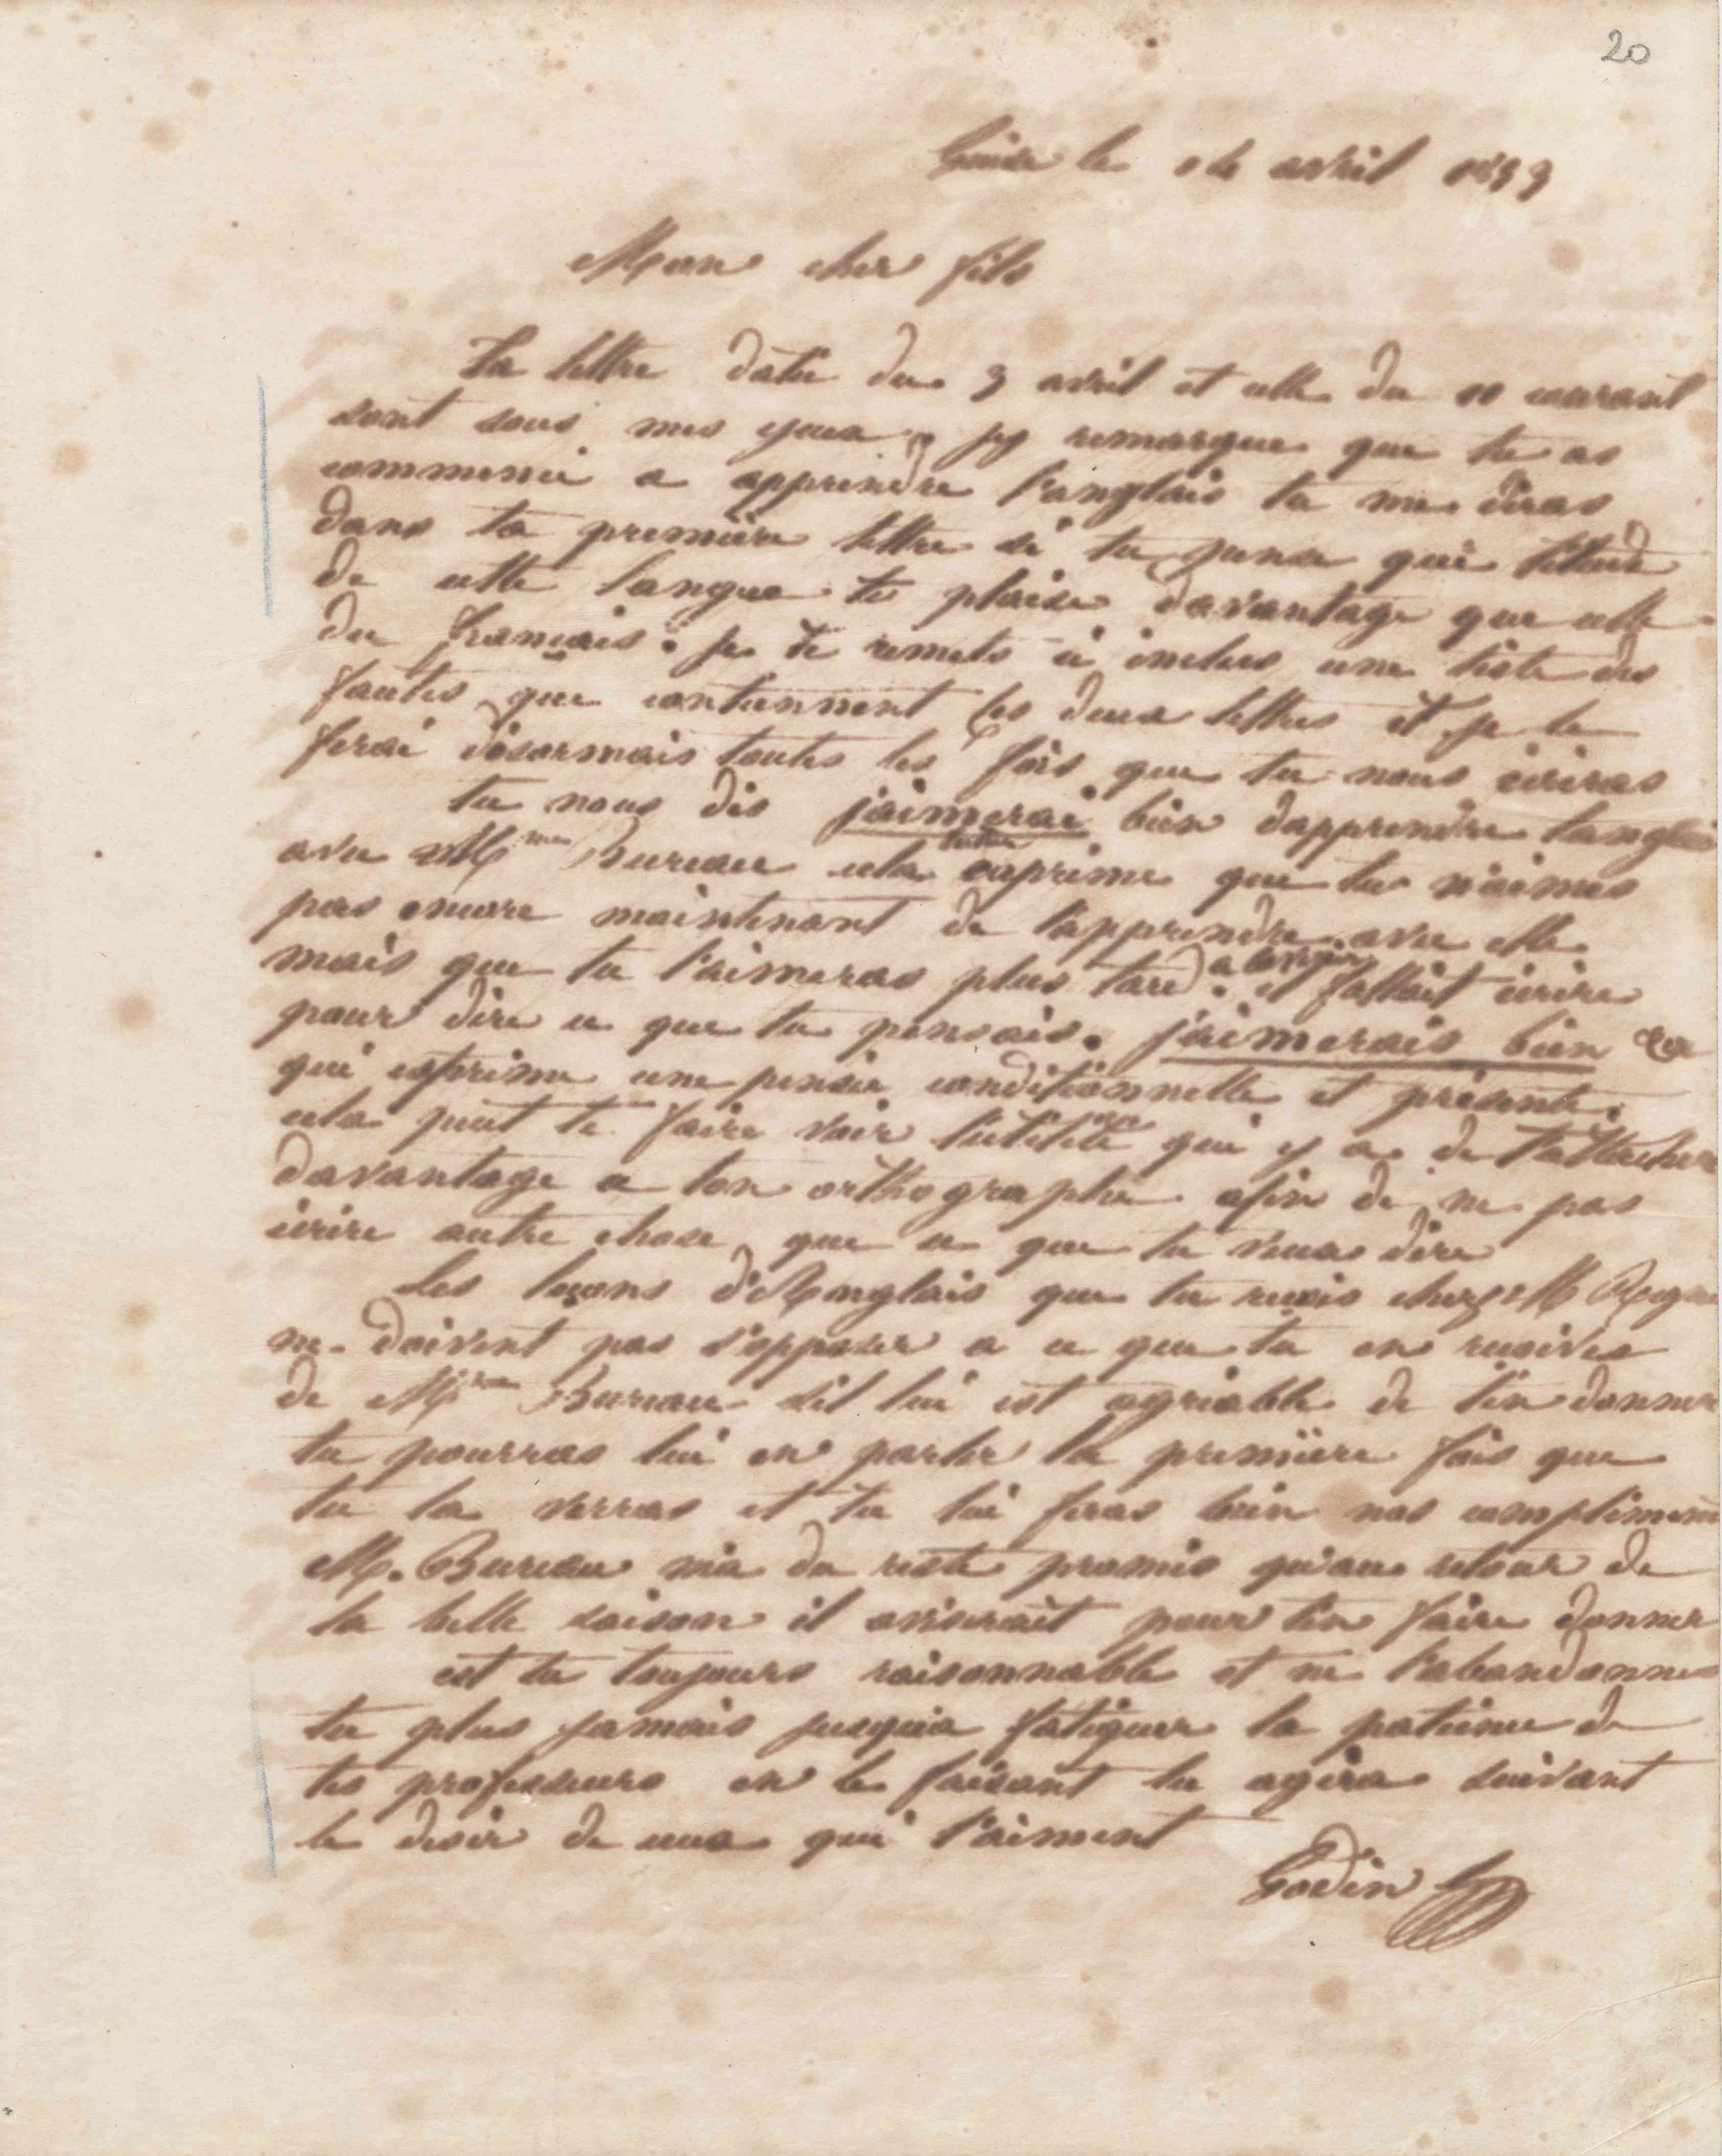 20
Guise le avril
Mon cher fils
Ta lettre datée du 3 avril et celle du 11 courant
sont sous mes yeux. j'y remarque que tu as
commencé a apprendre l'anglais tu me diras
dans ta première lettre si tu pense que l'étude
de cette langue te plaise davantage que celle
du français. je te remets ci inclus une liste des
fautes que contiennent tes deux lettres et je le
ferai désormais toutes les fois que tu nous écriras
tu nous dis j'aimerai bien d'apprendre l'anglais
avec Mme Bureau cela exprime que tu n'aimes
pas encore maintenant de l'apprendre avec elle
mais que tu l'aimeras plus tard. il fallait écrire
pour dire ce que tu pensais. j'aimerais bien &a
qui exprime une pensée conditionnelle et présente.
cela peut te faire voir l'utilité qui y a de t'attacher
davantage a ton orthographe afin de ne pas
écrire autre chose que ce que tu veux dire
Les leçons d'Anglais que tu reçois chez M
ne doivent pas s'opposer a ce que tu en reçoives
de Mme Bureau s'il lui est agréable de t'en donner
tu pourras lui en parler la première fois que
tu la verras et tu lui feras bien nos compliments
M. Bureau m'a du reste promis qu'au retour de
la belle saison il aviserait pour t'en faire donner
est tu toujours raisonnable et ne t'abandonnes
tu plus jamais jusqu'a fatiguer la patience de
tes professeurs en le faisant tu agira suivant
le desir de ceux qui t'aiment
Godin